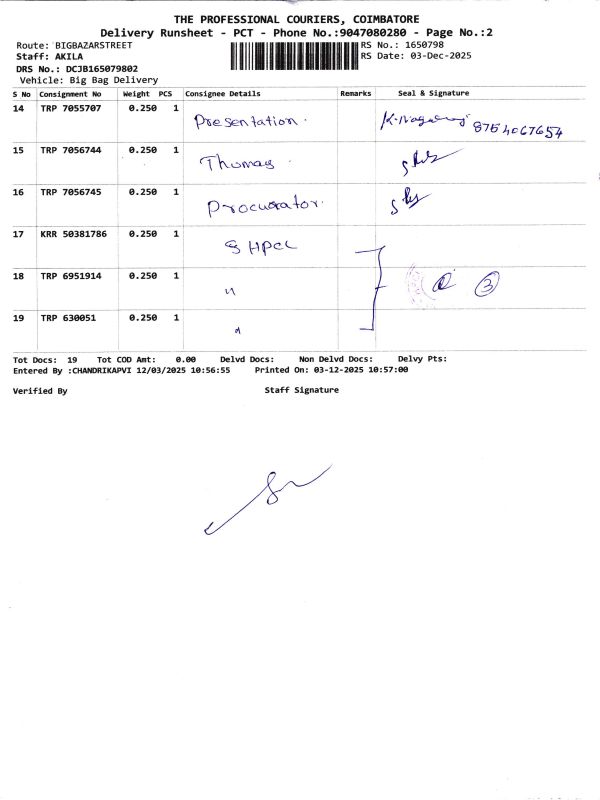 THE PROFESSIONAL COURIERS, COIMBATORE
Delivery Runsheet - PCT - Phone No.:9047080280 - Page No.:2
Route: BIGBAZARSTREET RS No.: 1650798
Staff: AKILA RS Date: 03-Dec-2025
DRS No.: DCJB165079802
Vehicle: Big Bag Delivery
S No Consignment No Weight PCS Consignee Details Remarks Seal & Signature
14 TRP 7055707 0.250 1 Presentation. 8754067654
15 TRP 7056744 0.250 1 Thomas
16 TRP 7056745 0.250 1 Procurator.
17 KRR 50381786 0.250 1 HPCL
18 TRP 6951914 0.250 1 " 3
19 TRP 630051 0.250 1 "
Tot Docs: 19 Tot COD Amt: 0.00 Delvd Docs: Non Delvd Docs: Delvy Pts:
Entered By :CHANDRIKAPVI 12/03/2025 10:56:55 Printed On: 03-12-2025 10:57:00
Verified By Staff Signature